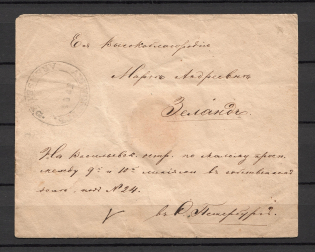 Ея Высокоблагородію
Марье Андреевне
Зеландъ
На Васильевск. остр. по малому прос.
пекту 9й и 10й линіями въ собственном
доме, подъ № 24.
въ С. Петербургѣ.